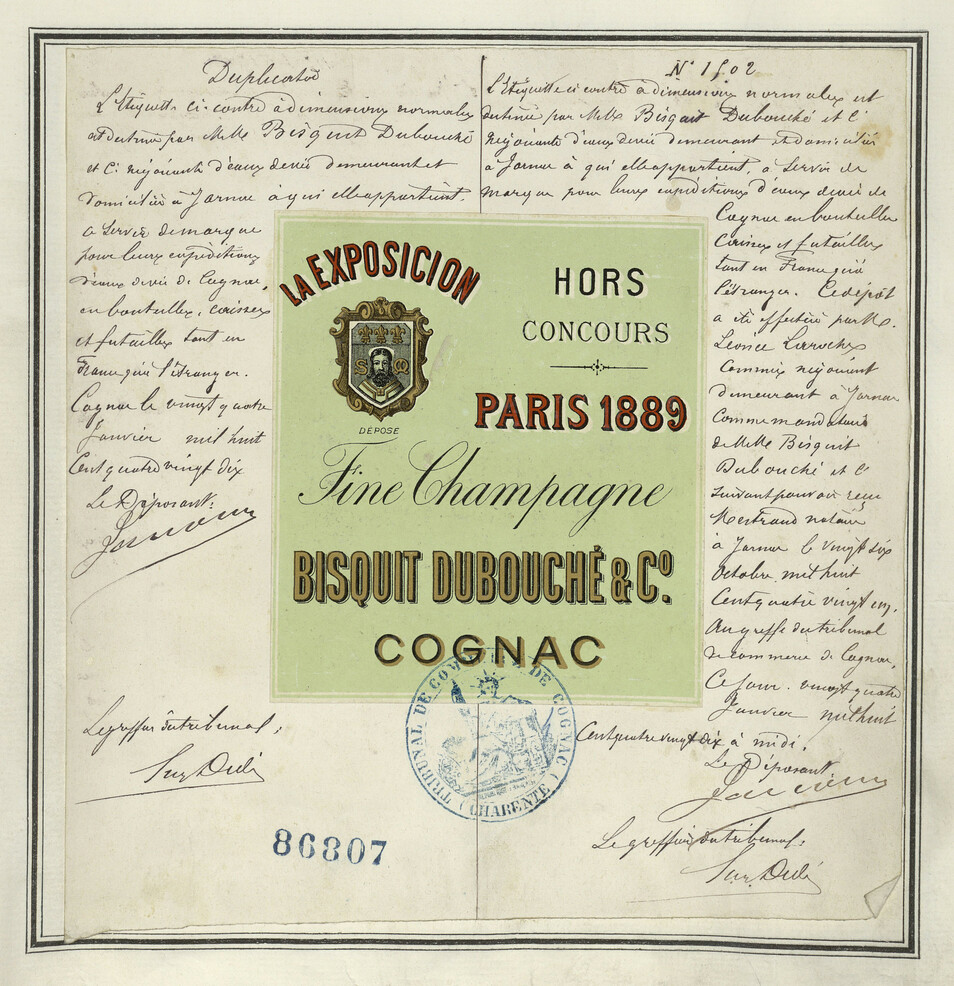 Duplicata
L'Etiquette ci-contre à dimensions normales
est destinée par MMrs Bisquit Dubouché
et Cie négociants d'eaux de vie demeurant et
domiciliés à Jarnac à qui elle appartient,
à servir de marque
pour leurs expéditions
d'eaux de vie de Cognac,
en bouteilles, caisses
et futailles tant en
France qu'à l'étranger.
Cognac le vingt quatre
Janvier mil huit
Cent quatre vingt dix
Le Déposant:
Le greffier du tribunal,
N° 1502
L'Etiquette ci contre à dimensions normales est
destinée par MMrs Bisquit Dubouché et Cie
négociants d'eaux de vie demeurant et domiciliés
à Jarnac à qui elle appartient, à servir de
marque pour leurs expéditions d'eaux de vie de
Cognac en bouteilles
Caisses et futailles
tant en France qu'à
l'étranger. Ce dépôt
a été effectué par M.
Léonce Laroche
Commis négociant
demeurant à Jarnac
Comme mandataire
de MMrs Bisquit
Dubouché et Cie
suivant pouvoir reçu
notaire
à Jarnac le vingt six
Octobre mil huit
Cent quatre vingt un,
Au greffe du tribunal
de commerce de Cognac,
Ce jour vingt quatre
Janvier mil huit
Cent quatre vingt dix à midi.
Le Déposant
Le greffier du tribunal,
LA EXPOSICION
HORS
CONCOURS
S M
DÉPOSÉ
PARIS 1889
Fine Champagne
BISQUIT DUBOUCHÉ & Co.
COGNAC
TRIBUNAL DE COMMERCE DE COGNAC
(CHARENTE)
86807